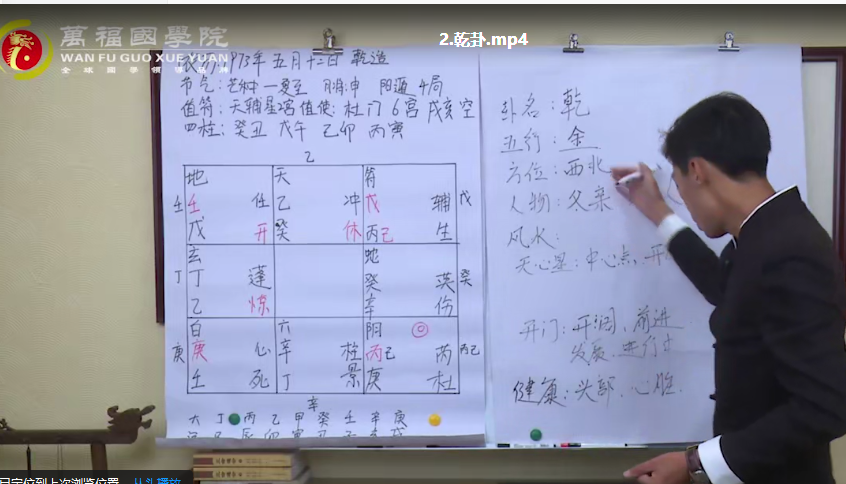 萬福國學院
WAN FU GUO XUE YUAN
全球國學領導品牌
2.乾卦.mp4
1973年 五月十二日 乾造
节气：芒种—夏至 阳遁 4局
值符：天辅星2宫 值使：杜门 6宫 戌亥空
四柱：癸丑 戊午 己卯 丙寅
乙
地 天 符
壬 壬 任 乙 冲 戊 辅 戊
戊 开 癸 休 丙己 生
玄 蛇
丁 丁 蓬 癸 英 癸
乙 惊 辛 伤
白 六 阴
庚 庚 心 辛 柱 丙己 芮 丙己
壬 死 丁 景 庚 杜
辛
六 丁 丙 乙 甲 癸 壬 辛 庚
卦名：乾
五行：金
方位：西北
人物：父亲
风水：
天心星：中心点、开
开门：开阔、前进
发展、进行
健康：头部、心脏
已定位到上次浏览位置 从头播放